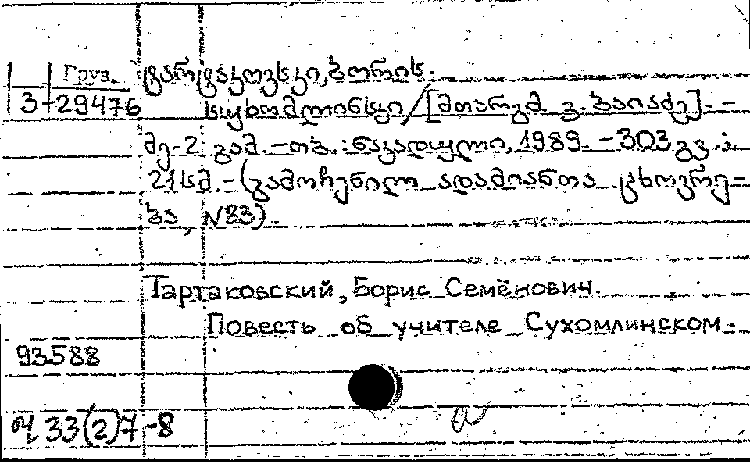 Груз.
ტარტაკოვსკი, ბორის.
3-29476
სუხომლინსკი/[მთარგმ. გ. ბაიაძე]. -
მე-2 გამ. - თბ.: ნაკადული, 1989. - 303 გვ.;
21 სმ. - (გამოჩენილ ადამიანთა ცხოვრე-
ბა, №83).
Тартаковский, Борис Семёнович.
Повесть об учителе Сухомлинском.
93588
33(2)7-8